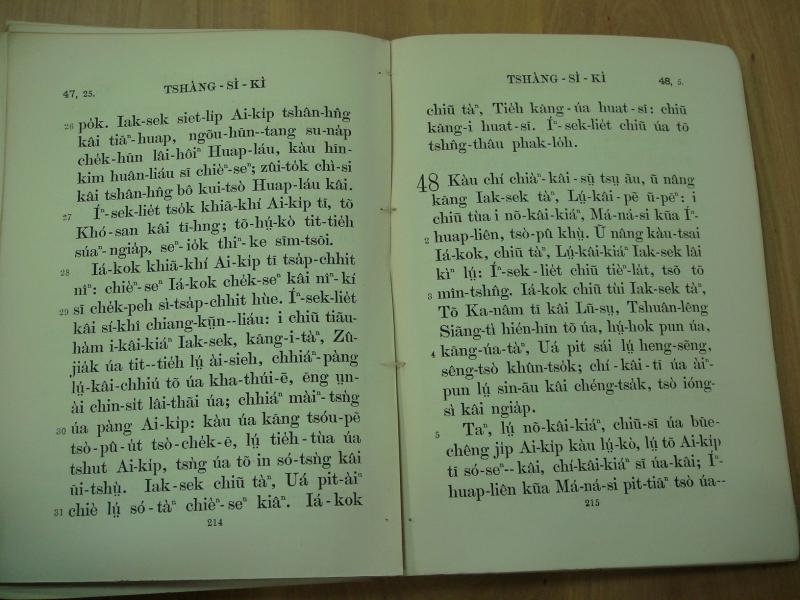 47, 25.
TSHÀNG - SÌ - KÌ
26 pó̤k. Iak-sek siet-li̍p Ai-ki̍p tshân-hn̂g
kâi tiāⁿ-huap, ngōu-hūn--tang su-na̍p
che̍k-hūn lâi-hôiⁿ Huap-láu, kàu hīn-
kim huân-liáu sĩ chièⁿ-seⁿ; zûi-to̍k chì-si
kâi tshân-hn̂g bô kui-tsò Huap-láu kâi.
27 Íⁿ-sek-lie̍t tso̍k khiā-khí Ai-ki̍p tī, tõ
Khó-san kâi tī-hng; tõ-hṳ́-kò tit-tie̍h
súaⁿ-ngia̍p, seⁿ-io̍k thiⁿ-ke sĩm-tsõi.
28 Iá-kok khiā-khí Ai-ki̍p tī tsa̍p-chhit
nîⁿ: chièⁿ-seⁿ Iá-kok che̍k-seⁿ kâi nîⁿ-kí
29 sĩ che̍k-peh sì-tsa̍p-chhit hùe. Íⁿ-sek-lie̍t
kâi sí-khî chiang-kṳ̃n--liáu: i chiũ tiāu-
hàm i-kâi-kiáⁿ Iak-sek, kāng-i-tàⁿ, Zû-
jia̍k úa tit--tie̍h lṳ́ ài-sieh, chhiáⁿ-pàng
lṳ́-kâi-chhiú tõ úa kha-thúi-ē, ēng ṳn-
ài chin-sit lâi-thāi úa; chhiáⁿ màiⁿ-tsǹg
30 úa pàng Ai-ki̍p: kàu úa kāng tsóu-pẽ
tsò-pû-út tsò-che̍k-ē, lṳ́ tie̍h-tùa úa
tshut Ai-ki̍p, tsǹg úa tõ in só-tsǹg kâi
ũi-tshṳ̀. Iak-sek chiũ tàⁿ, Uá pit-àiⁿ
31 chiè lṳ́ só-tàⁿ chièⁿ-seⁿ kiâⁿ. Iá-kok
214
TSHÀNG - SÌ - KÌ
48, 5.
chiũ tàⁿ, Tie̍h kāng-úa huat-sī: chiũ
kāng-i huat-sī. Íⁿ-sek-lie̍t chiũ úa tõ
tshn̂g-thâu phak-lo̍h.
48 Kàu chí chiàⁿ-kâi-sṳ̃ tsṳ āu, ũ nâng
kāng Iak-sek tàⁿ, Lṳ́-kâi-pẽ ũ-pēⁿ: i
chiũ tùa i nõ-kâi-kiáⁿ, Má-ná-si kūa Íⁿ-
2 huap-liên, tsò-pû khṳ̀. Ũ nâng kàu-tsai
Iá-kok, chiũ tàⁿ, Lṳ́-kâi-kiáⁿ Iak-sek lâi
kìⁿ lṳ́: Íⁿ-sek-lie̍t chiũ tièⁿ-la̍t, tsõ tõ
3 mîn-tshn̂g. Iá-kok chiũ tùi Iak-sek tàⁿ,
Tõ Ka-nâm tī kâi Lū-sṳ, Tshuân-lêng
Siāng-tì hién-hīn tõ úa, hṳ́-hok pun úa,
4 kāng-úa-tàⁿ, Uá pit sái lṳ́ heng-sēng,
sêng-tsò khûn-tso̍k; chí-kâi-tī úa àiⁿ-
pun lṳ́ sin-āu kâi chéng-tsa̍k, tsò ióng-
sì kâi ngia̍p.
5 Taⁿ, lṳ́ nõ-kâi-kiáⁿ, chiũ-sĩ úa būe-
chêng ji̍p Ai-ki̍p kàu lṳ́-kò, lṳ́ tõ Ai-ki̍p
tī só-seⁿ--kâi, chí-kâi-kiáⁿ sĩ úa-kâi; Íⁿ-
huap-liên kūa Má-ná-si pit-tiāⁿ tsò úa--
215